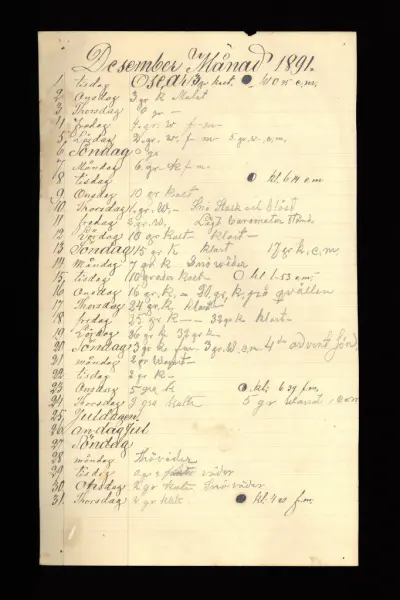 Desember Månad 1891.
1. tisdag Oscar 13 gr kalt. kl 0 15 e.m.
2 Onsdag 3 gr k Mulet
3 Thorsdag 0 gr
4 fredag 4. gr. w f m
5. Lördag 2. gr. w. f m 5 gr. w. e. m.
6 Söndag 0 gr
7 Måndag 6 gr. k f m.
8 tisdag kl 6 14 e m
9 Onsdag 10 gr kalt
10 Thorsdag gr. W. Snö Stark och blåst
11 fredag gr. w. Lågt barometer Stånd
12 Lördag 10 gr kalt klart
13 Söndag 15 gr k klart 17 gr k. e. m
14 Måndag gr k Snö väder
15. tisdag 10 grader kalt kl 1.53 e m.
16 Onsdag 16 gr k. 20 gr. k. på qvällen
17 Thorsdag 24 gr k klart
18 fredag 35 gr k 33 gr k klart
19 Lördag 36 gr k 32 gr k
20 Söndag 3 gr k fm. 3 gr. W. e m. 4de advent Sön
21 måndag 2 gr Warmt
22 tisdag 2 gr k
23 Onsdag 5 gr k kl. 6 39 f m.
24 Thorsdag 3 gra 5 gr Warmt, e m
25 Juldagen
26 andag Jul
27 Söndag
28 måndag Snöväder
29 tisdag väder
30 Onsdag 2 gr kalt Snö väder
31. Thorsdag 2 gr kalt kl. 4 20 f. m.